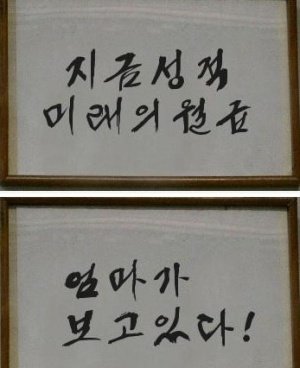 지금성적
미래의월급
엄마가
보고있다!